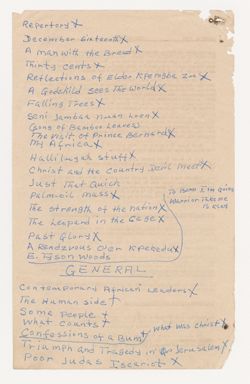 Repertory X
December Sixteenth X
A man with the Bread X
Thirty cents X
Reflections of Elder Kpengba Zuo X
A Godchild Sees The World X
Falling Trees X
Seni Jamba Nuan Loen X
(Song of Bamboo Leaves)
The Visit of Prince Bernard X
My Africa X
Hallilugah Stuff X
Christ and the Country Devil Meet X
Just That Quick
Palm-oil Mass X
The Strength of the Nation X
The Leopard in the Cage X
Past Glory X
A Rendezvous Over Kpekedu X
E. Tyson Woods
To Bomi I'm going
Warrior
is dead
GENERAL
Contemporary African Leaders X
The Human side †
Some People †
What Counts †
Confessions of a Bum † What was Christ X
Triumph and Tragedy in Jerusalem X
Poor Judas Iscariot X